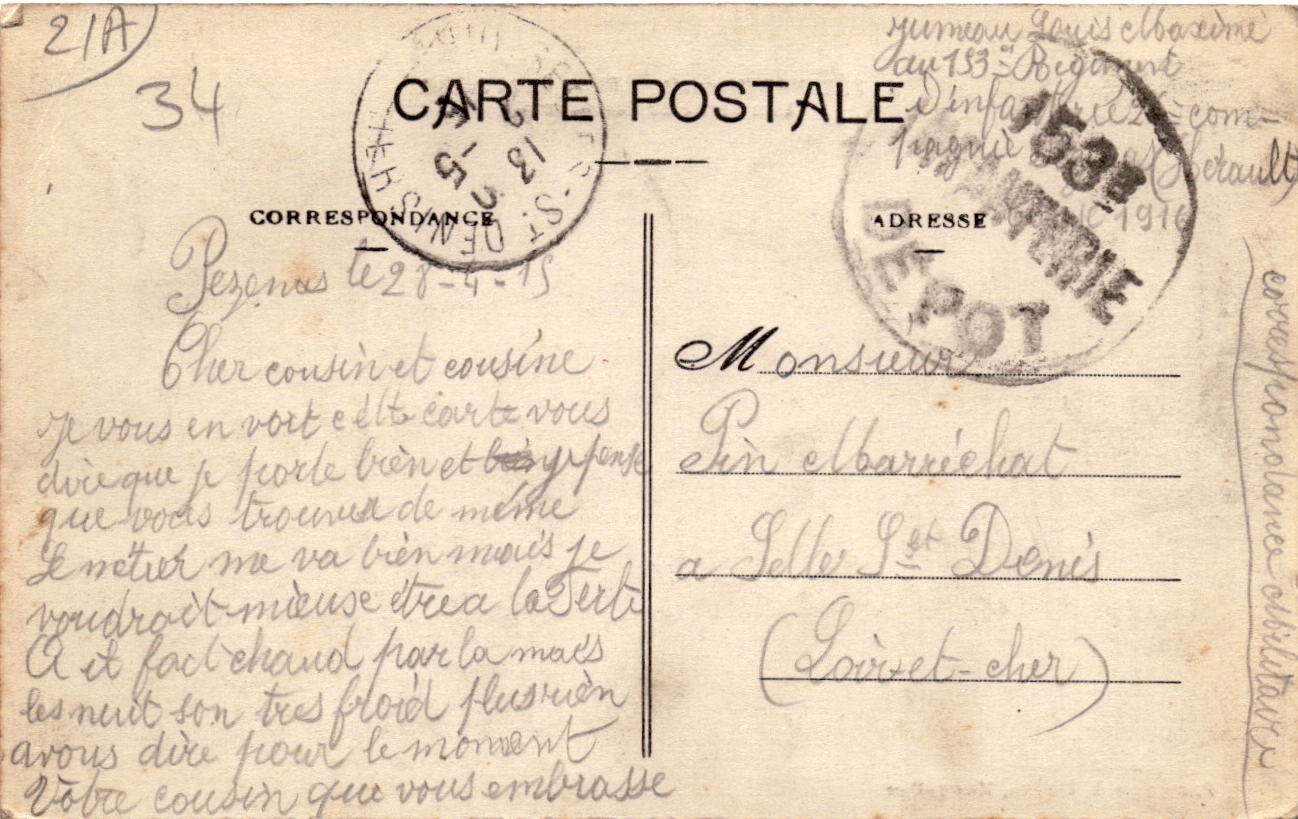 21A
34
CARTE POSTALE
Jumeau Louis Maxime
au 153m Regiment
D'infanterie 26 com-
pagnie
(Hérault)
1916
153e
INFANTERIE
DÉPOT
ST DENIS
13 5
CORRESPONDANCE
ADRESSE
Pezenas le 28-4-15
Cher cousin et cousine
Je vous en voit cette carte vous
dire que je porte bien et je pense
que vous trouvera de même
Le métier me va bien mais je
voudrait mieuse être a la Ferte
A it fait chaud par la mais
les nuit son tres froid plus rièn
avous dire pour le moment
Vôtre cousin que vous embrasse
Monsieur
Pin Marréchat
a Selles St Denis
(Loir-et-cher)
correspondance Militaire